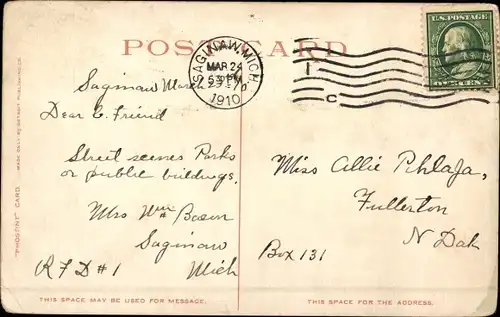 POST CARD
SAGINAW, MICH.
MAR 24
5 30 PM
1910
U.S. POSTAGE
ONE CENT
C
Saginaw March
Dear C. Friend
Street scenes Parks
or public buildings.
Mrs Wm Bacon
Saginaw
R F D #1 Mich
Miss Allie Phlaja,
Fullerton
N Dak
Box 131
"PHOSTINT" CARD.
THIS SPACE MAY BE USED FOR MESSAGE.
THIS SPACE FOR THE ADDRESS.